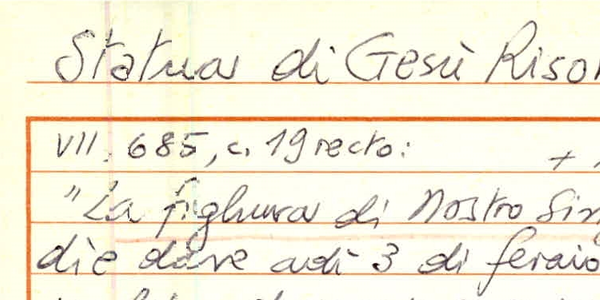 Statua di Gesù Risor
VII. 685, c. 19 recto: +
"La fighura di Nostro Sin
die dare adì 3 di feraio